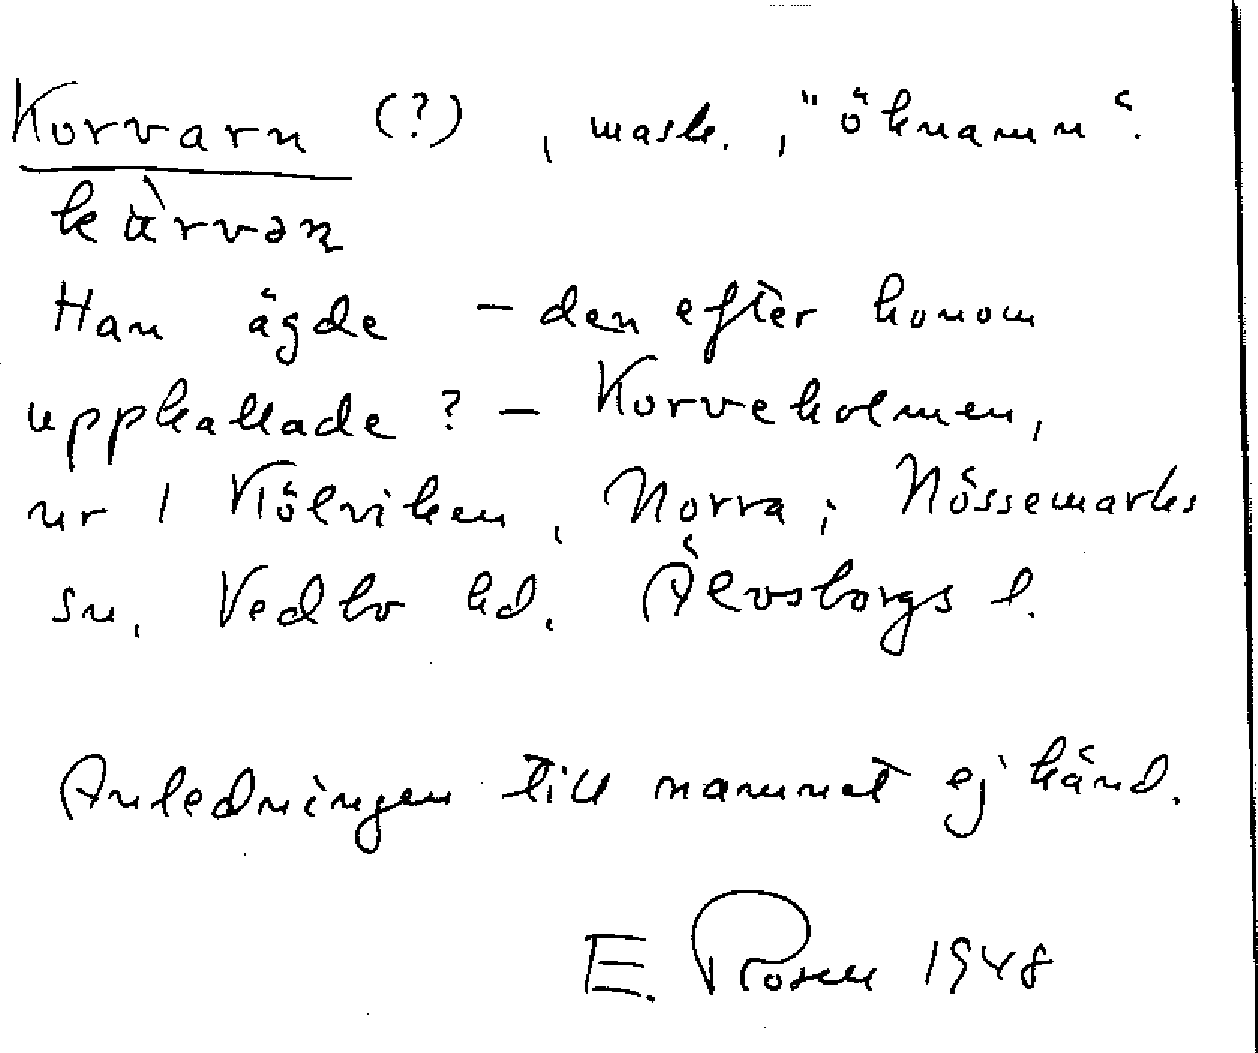 Korvarn (?), mask., "öknamn".
kùrvən
Han ägde – den efter honom
uppkallade ? – Korveholmen,
nr 1 Kölviken, Norra, i Nössemarks
sn, Vedbo hd. Älvsborgs l.
Anledningen till namnet ej känd.
E. Rosen 1948